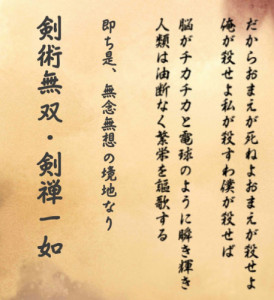 だからおまえが死ねよおまえが殺せよ
俺が殺せよ私が殺すわ僕が殺せば
脳がチカチカと電球のように瞬き輝き
人類は油断なく繁栄を謳歌する
即ち是、無念無想の境地なり
剣術無双・剣禅一如